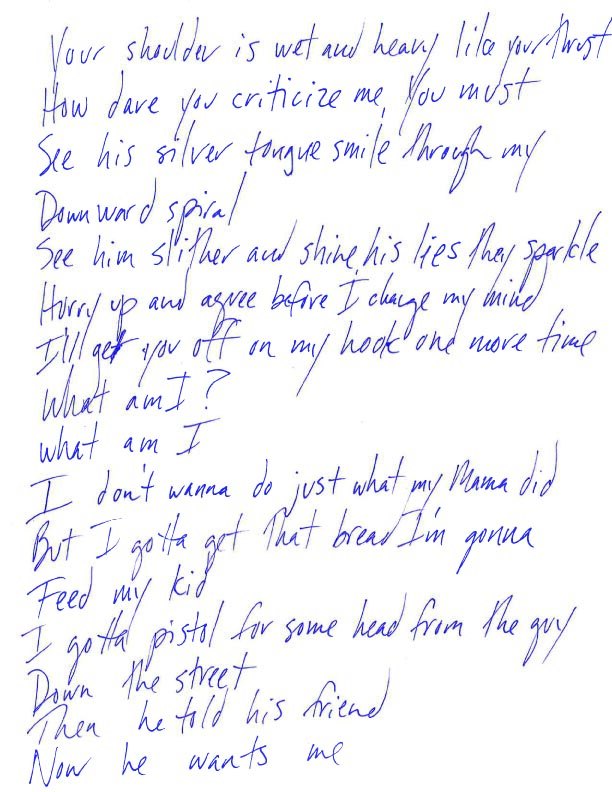 Your shoulder is wet and heavy like your thrust
How dare you criticize me, You must
See his silver tongue smile through my
Downward spiral
See him slither and shine, his lies they sparkle
Hurry up and agree before I change my mind
I'll get you off on my hook one more time
What am I?
what am I
I don't wanna do just what my Mama did
But I gotta get that bread I'm gonna
Feed my kid
I gotta pistol for some head from the guy
Down the street
Then he told his friend
Now he wants me